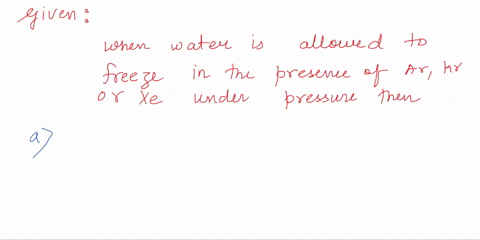 given:
when water is allowed to
freeze in the presence of Ar, Kr
or Xe under pressure then
a)